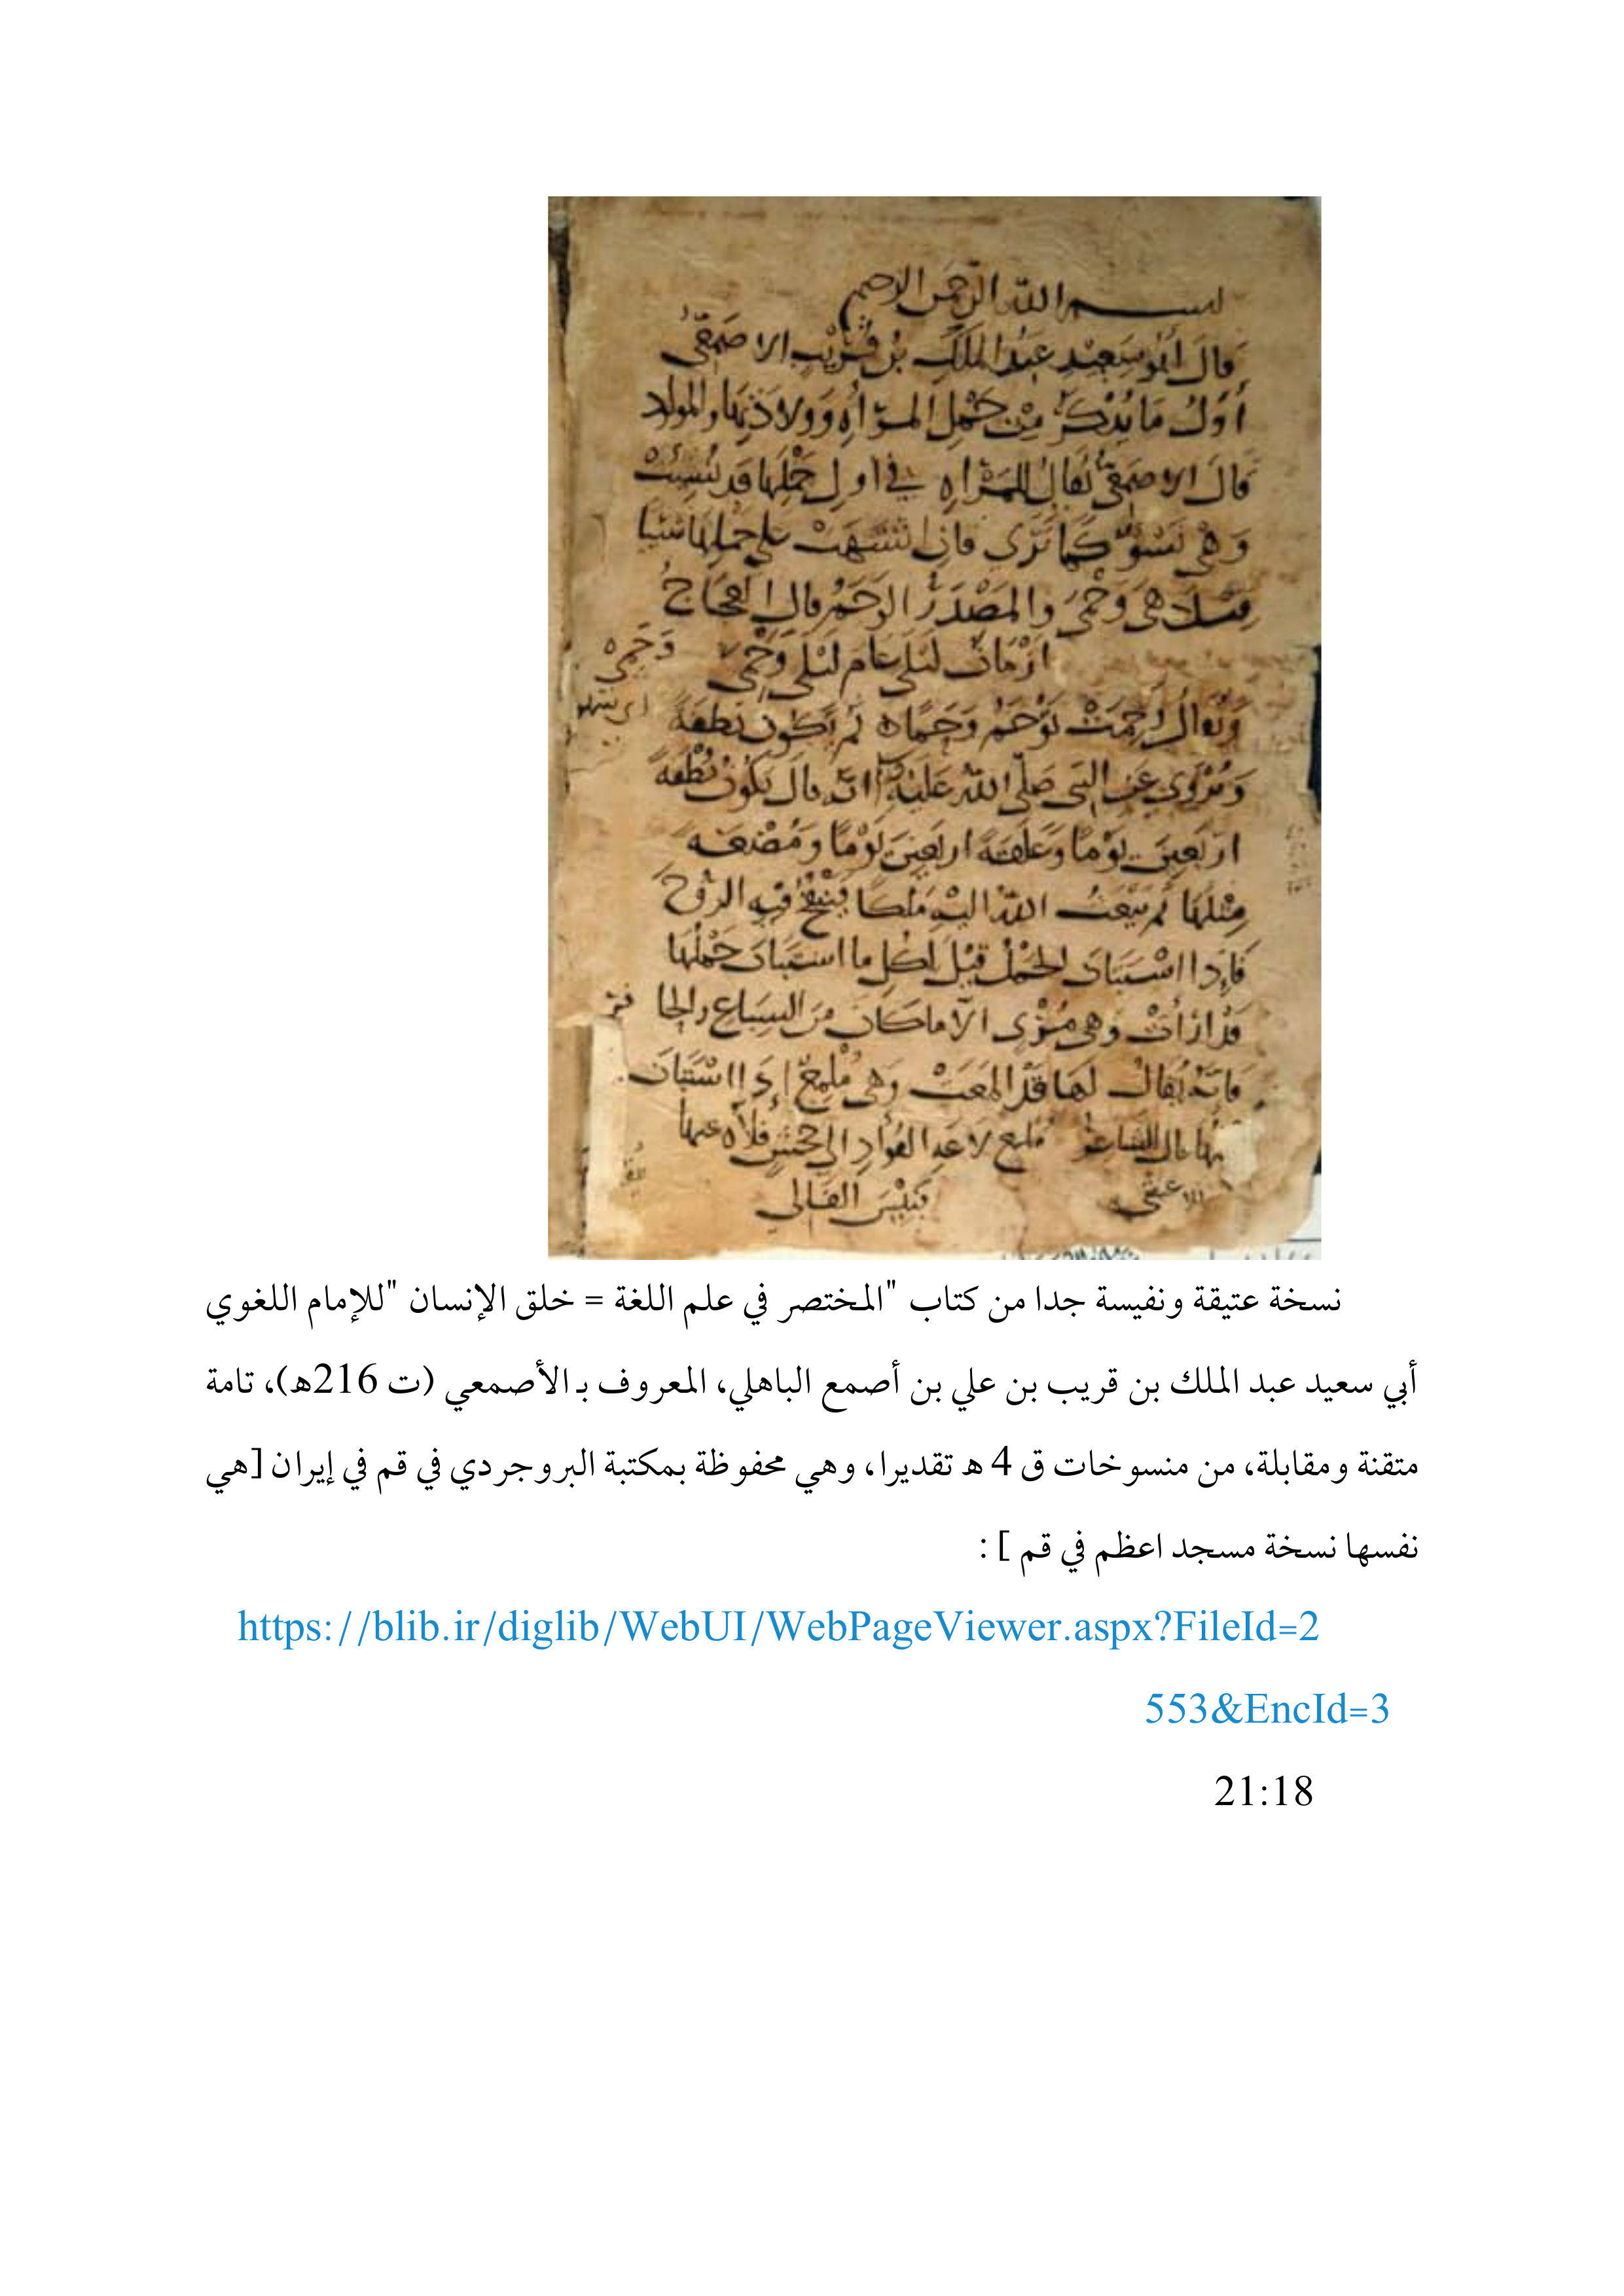 بسم الله الرحمن الرحيم
قَالَ أَبُو سَعِيْدٍ عَبْدُ المَلِكِ بْنُ قُرَيْبٍ الاصْمَعِيُّ
أَوَّلُ مَا يُذْكَرُ مِنْ حَمْلِ المَرْأَةِ وَوِلَادَتِهَا والمولود
قَالَ الاصْمَعِيُّ يُقَالُ لِلمَرْأَةِ في اول حَمْلِهَا قَد نُسِئَتْ
وَهْيَ نَسْؤٌ كَمَا تَرَى فَاِنِ اشْتَهَتْ على حَمْلِهَا شَيْئًا
هِيَ وَحْمَى والمَصْدَرُ الوَحَمُ قال العَجَّاجُ
ازْمَانَ لَيْلَى عَامَ لَيْلَى وَحَمِى
وَيُقَالُ وَحِمَتْ تَوْحَمُ وَحَمًا ثُمَّ تَكُونُ نُطْفَةً
وَيُرْوَى عَنِ النبي صَلَّى اللهُ عَلَيْهِ انه قَالَ يَكُونُ نُطْفَةً
ارْبَعِينَ يَوْمًا وَعَلَقَةً اربَعِينَ يَوْمًا وَمُضْغَةً
مِثْلَهَا ثُمَّ يَبْعَثُ اللهُ اليْهِ مَلَكًا يَنْفُخُ فِيهِ الرُّوحَ
فَاِذَا اسْتَبَانَ الحَمْلُ قِيْلَ لِكُلِ ما استَبَانَ حَمْلُهَا
قَدْ ارْأَتْ وَهِيَ مُرْئِي الَّا مَا كَانَ مِنَ السِّبَاعِ والحا فر
فَاِنَّهُ يُقَالُ لَهَا قَدْ المَعَتْ وَهِيَ مُلْمِعٌ إِذَا اسْتَبَانَ
قال الشاعر ملمع لاعَةِ الفُؤَادِ الى جَحْشٍ فَلَاهُ عنها
فَبِئْسَ الفَالِي
نسخة عتيقة ونفيسة جدا من كتاب "المختصر في علم اللغة = خلق الإنسان "للإمام اللغوي
أبي سعيد عبد الملك بن قريب بن علي بن أصمع الباهلي، المعروف بـ الأصمعي (ت 216هـ)، تامة
متقنة ومقابلة، من منسوخات ق 4 هـ تقديرا، وهي محفوظة بمكتبة البروجردي في قم في إيران [هي
نفسها نسخة مسجد اعظم في قم ] :
https://blib.ir/diglib/WebUI/WebPageViewer.aspx?FileId=2
553&EncId=3
21:18